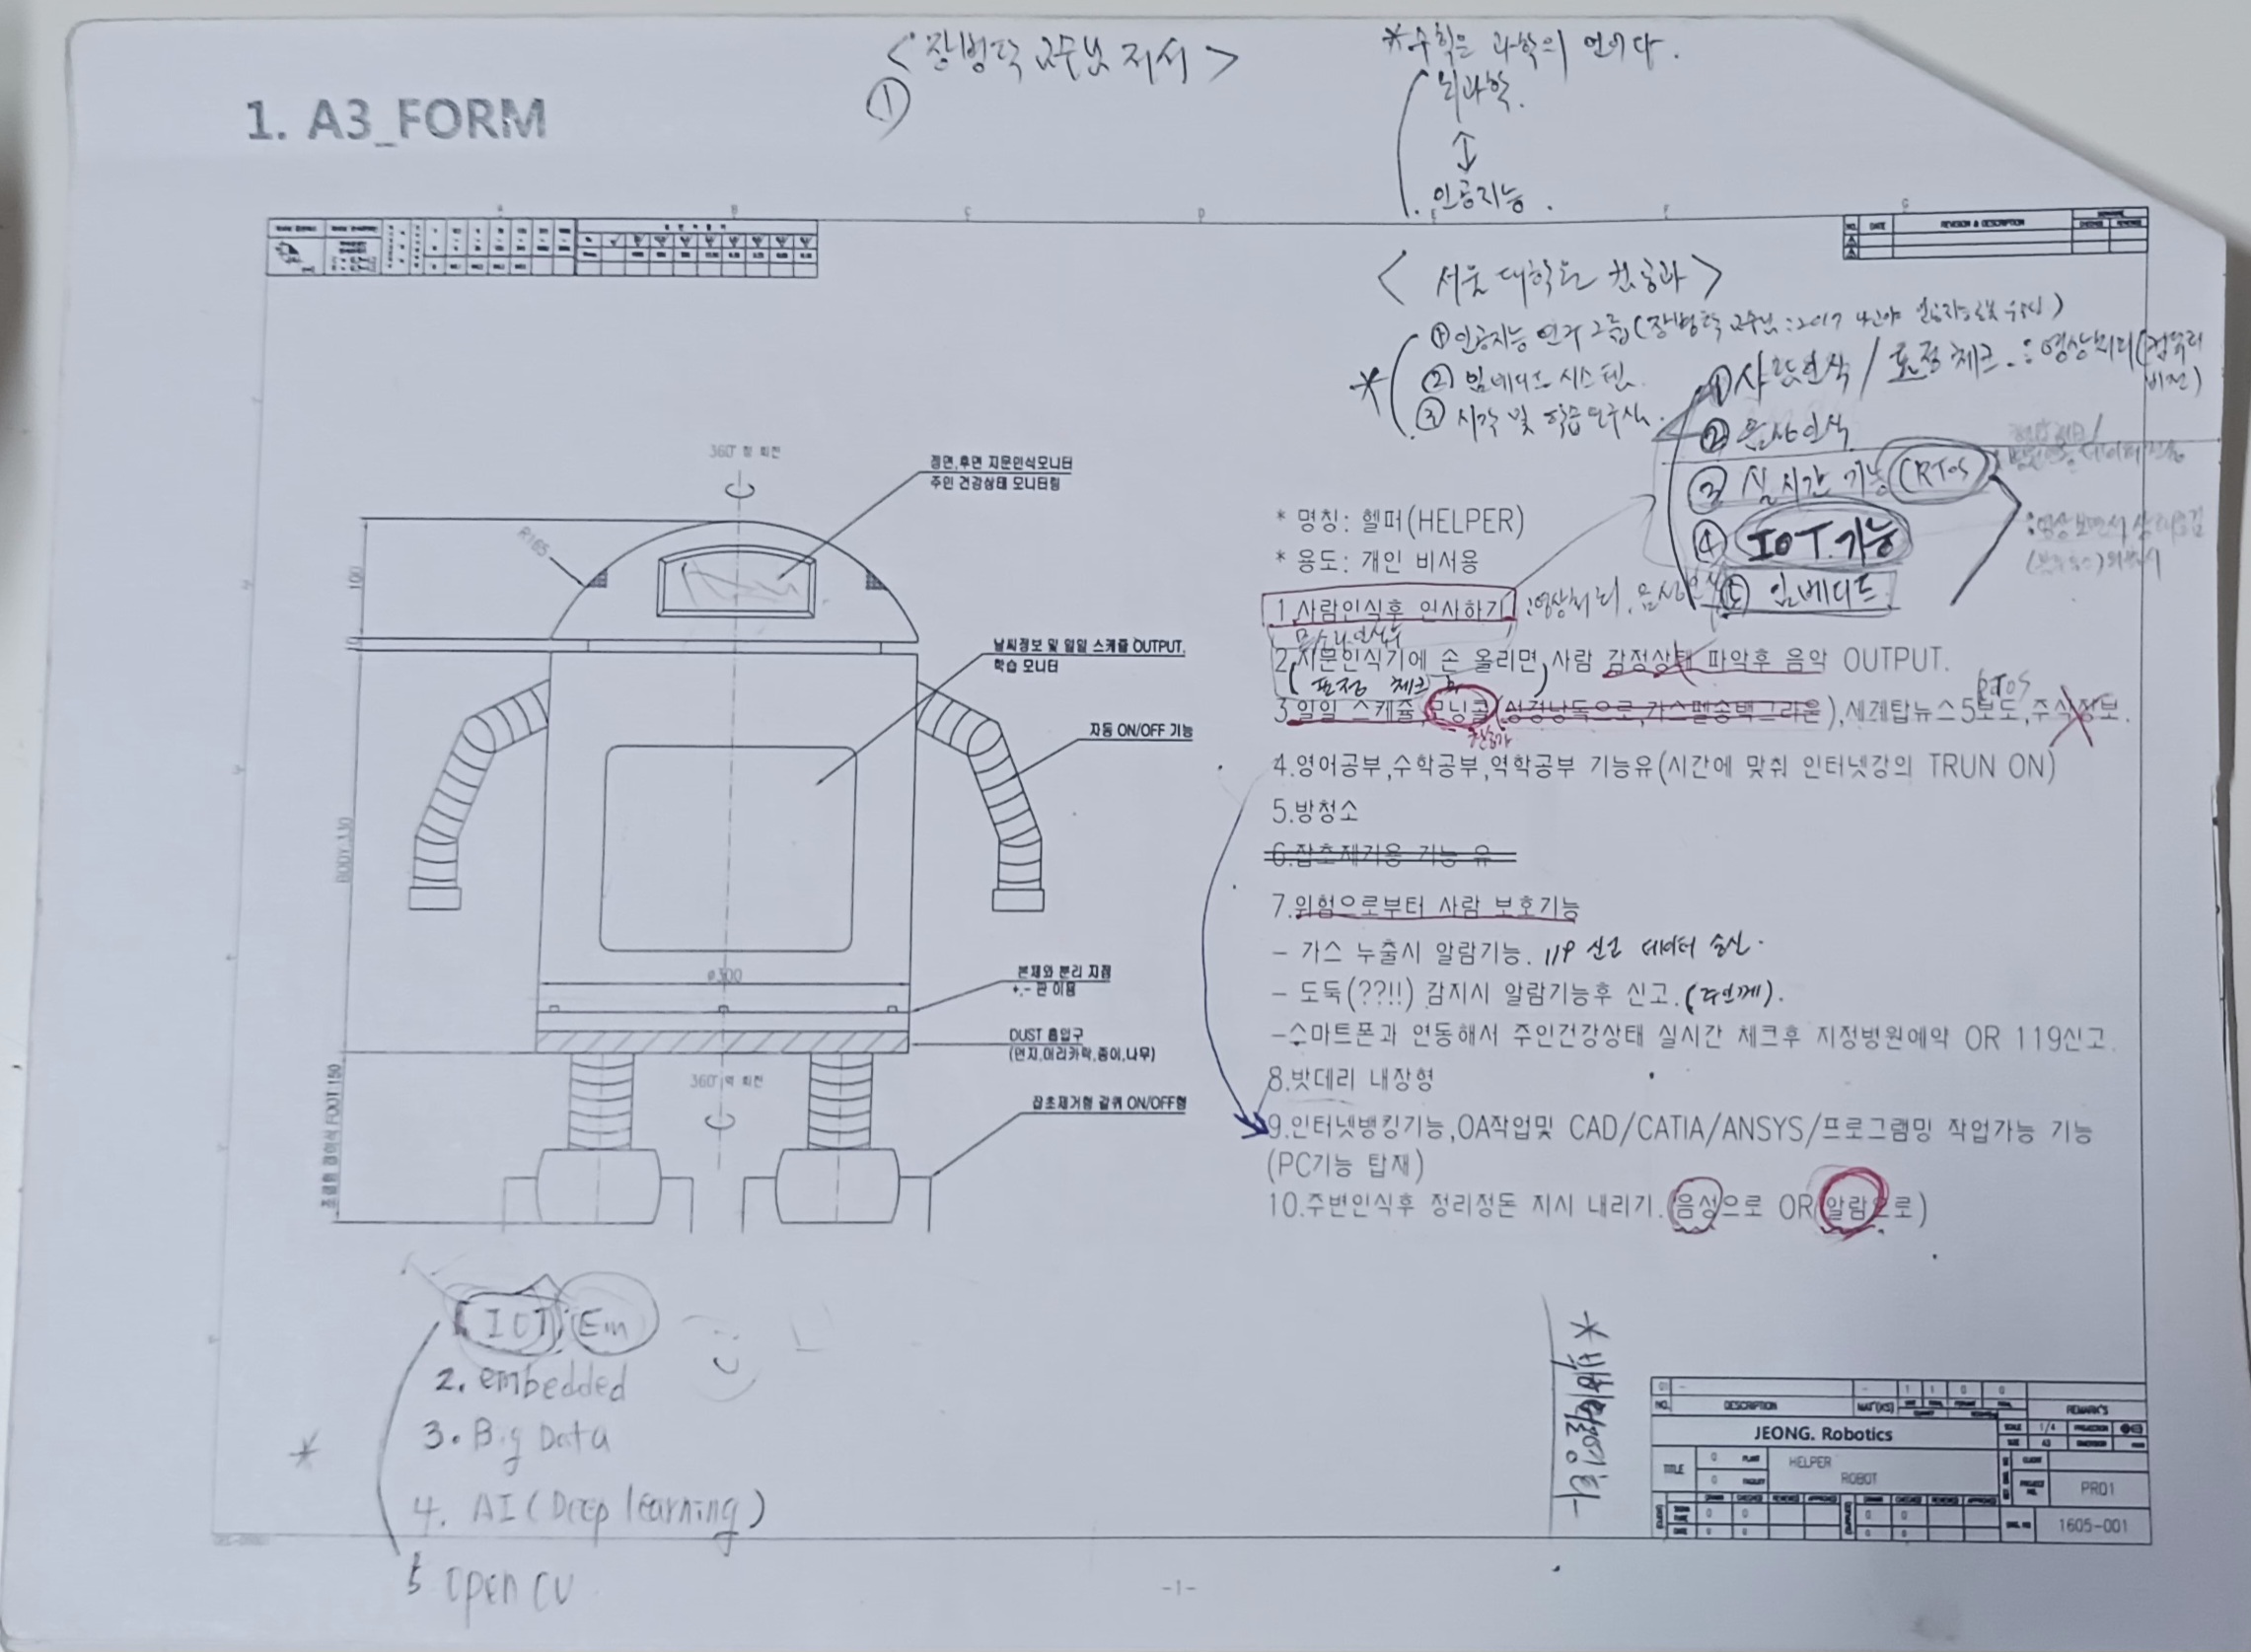 <장병탁 교수님 저서>
①
*수학은 과학의 언어다.
뇌과학.
↕
인공지능.
1. A3_FORM
A
B
C
D
E
F
G
NO.
DATE
REVISION & DESCRIPTION
<서울대학교 컴공과>
①인공지능 연구 그룹(장병탁 교수님:2017
② 임베디드 시스템.
③ 시각 및 학습연구실.
①사람인식 / 표정체크. :영상처리(컴퓨터비전)
②음성인식
③ 실시간 기능(RTOS)
④ IOT.기능
⑤ 임베디드
360° 정 회전
정면,후면 지문인식모니터
주인 건강상태 모니터링
R165
100
날씨정보 및 일일 스케쥴 OUTPUT.
학습 모니터
자동 ON/OFF 기능
BODY:330
ø300
본체와 분리 지점
+,- 판 이용
DUST 흡입구
(먼지,머리카락,종이,나무)
360° 역 회전
잡초제거형 갈퀴 ON/OFF형
FOOT 150
* 명칭: 헬퍼(HELPER)
* 용도: 개인 비서용
1.사람인식후 인사하기 :영상처리, 음성인식
목소리 인식후
2.지문인식기에 손 올리면,사람 감정상태 파악후 음악 OUTPUT.
(표정 체크 후)
RTOS
3.일일 스케쥴,모닝콜(성경낭독으로,가스펠송백그라운),세계탑뉴스5보도,주식정보.
4.영어공부,수학공부,역학공부 기능유(시간에 맞춰 인터넷강의 TRUN ON)
5.방청소
6.잡초제거용 기능 유
7.위험으로부터 사람 보호기능
- 가스 누출시 알람기능. 119 신고 데이터 송신.
- 도둑(??!!) 감지시 알람기능후 신고.(주인께).
-스마트폰과 연동해서 주인건강상태 실시간 체크후 지정병원예약 OR 119신고.
8.밧데리 내장형
9.인터넷뱅킹기능,OA작업및 CAD/CATIA/ANSYS/프로그램밍 작업가능 기능
(PC기능 탑재)
10.주변인식후 정리정돈 지시 내리기.(음성으로 OR 알람으로)
1. IOT, Em
2. embedded
3. Big Data
4. AI (Deep learning)
5 open CV
*
NO.
DESCRIPTION
MAT'(KS)
REMARK'S
JEONG. Robotics
SCALE
1/4
A3
TITLE
HELPER
ROBOT
PR01
1605-001
-1-